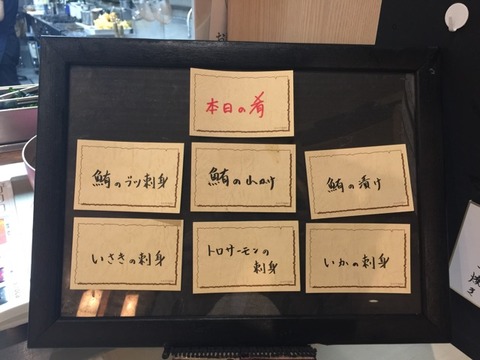 本日の肴
鮪のブツ刺身
鮪の山かけ
鮪の漬け
いさきの刺身
トロサーモンの
刺身
いかの刺身
焼き